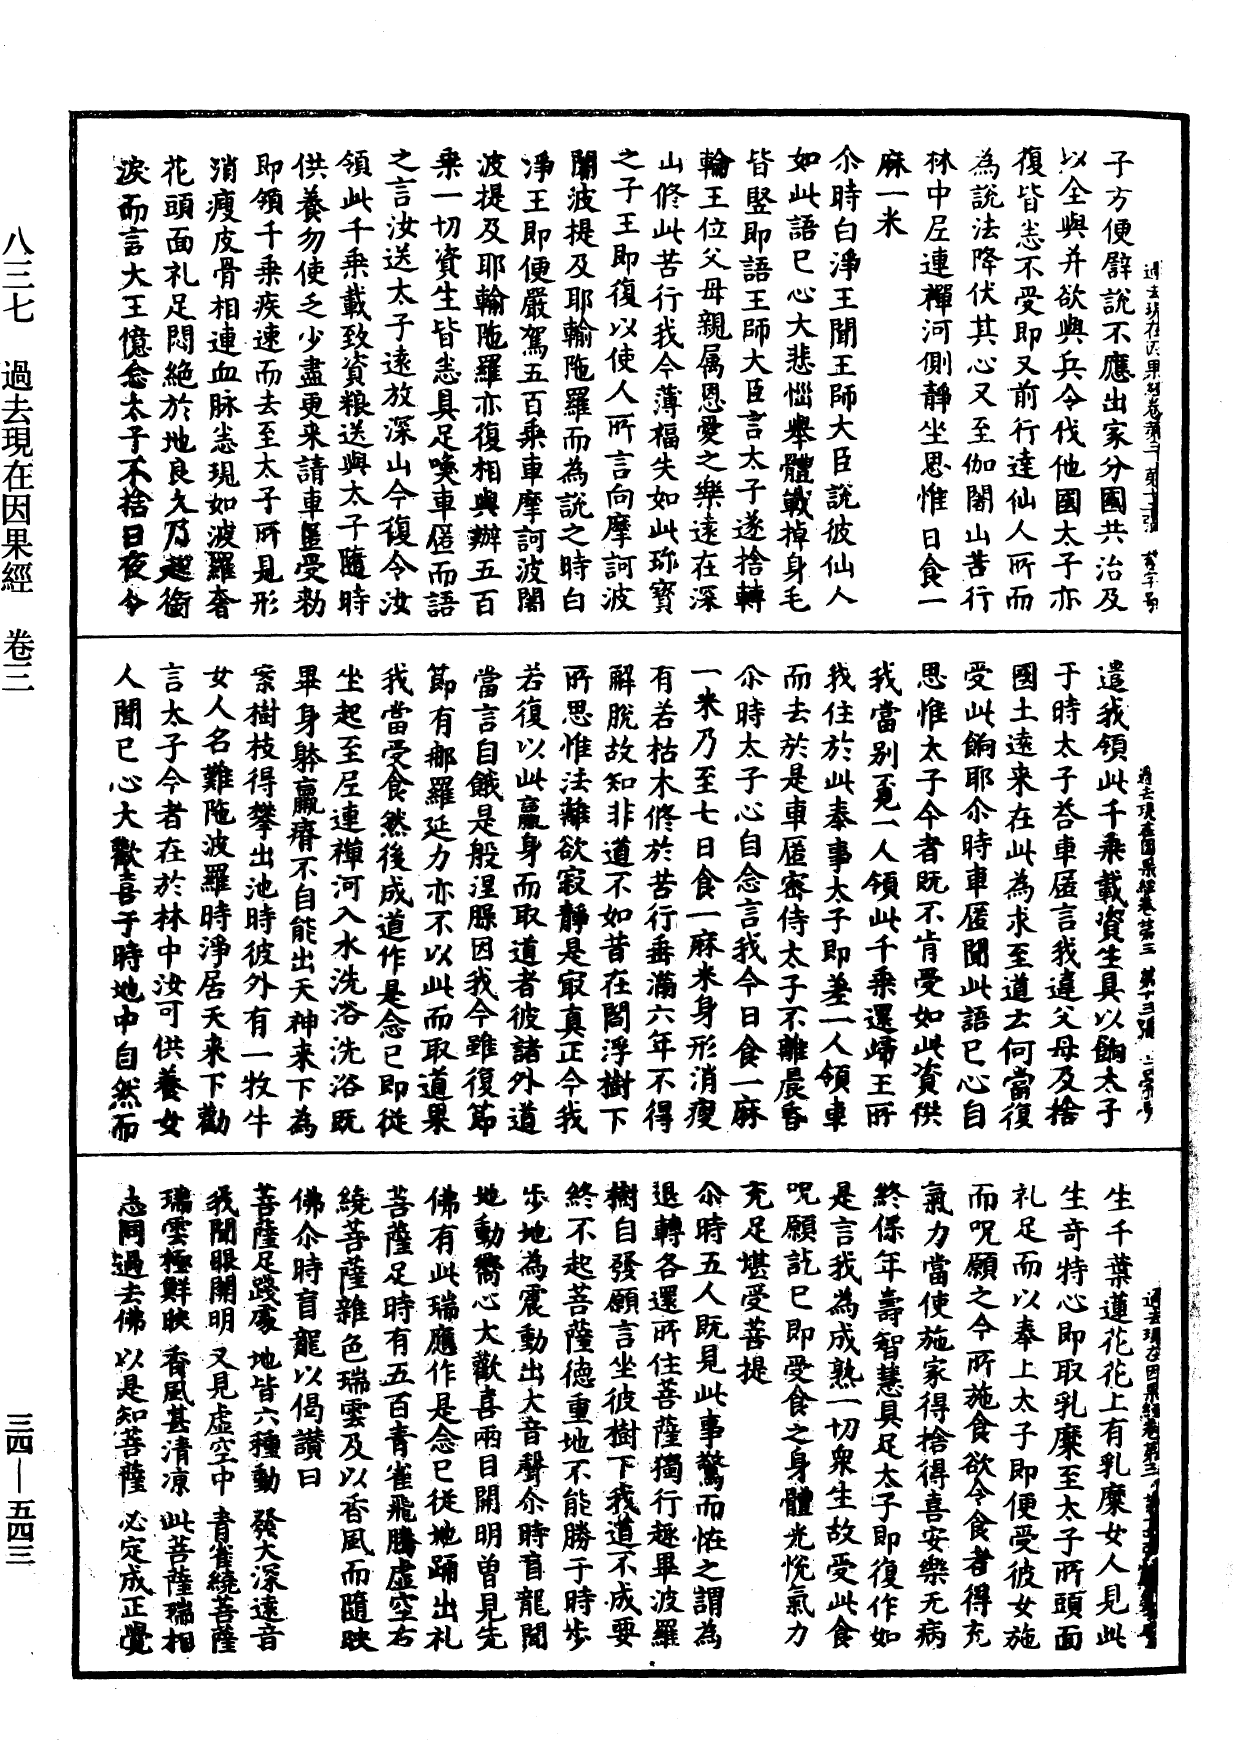 子方便譬說不應出家分國共治及
以全與并欲與兵令伐他國太子亦
復皆悉不受即又前行達仙人所而
為說法降伏其心又至伽闍山苦行
林中尼連禪河側靜坐思惟日食一
麻一米
尒時白淨王聞王師大臣說彼仙人
如此語已心大悲惱舉體戰掉身毛
皆竪即語王師大臣言太子遂捨轉
輪王位父母親属恩愛之樂遠在深
山脩此苦行我今薄福失如此珎寶
之子王即復以使人所言向摩訶波
闍波提及耶輸陁羅而為說之時白
淨王即便嚴駕五百乗車摩訶波闍
波提及耶輸陁羅亦復相與辦五百
乗一切資生皆悉具足喚車匿而語
之言汝送太子遠放深山今復令汝
領此千乗載致資粮送與太子隨時
供養勿使乏少盡更来請車匿受勑
即領千乗疾速而去至太子所見形
消瘦皮骨相連血脉悉現如波羅奢
花頭面礼足悶絶於地良久乃起銜
淚而言大王憶念太子不捨日夜今
遣我領此千乗載資生具以餉太子
于時太子荅車匿言我違父母及捨
國土遠来在此為求至道云何當復
受此餉耶尒時車匿聞此語已心自
思惟太子今者既不肯受如此資供
我當别覓一人領此千乗還歸王所
我住於此奉事太子即差一人領車
而去於是車匿密侍太子不離晨昏
尒時太子心自念言我今日食一麻
一米乃至七日食一麻米身形消瘦
有若枯木脩於苦行垂滿六年不得
解脫故知非道不如昔在閻浮樹下
所思惟法離欲寂靜是寂真正今我
若復以此羸身而取道者彼諸外道
當言自餓是般涅槃因我今雖復節
節有那羅延力亦不以此而取道果
我當受食然後成道作是念已即從
坐起至尼連禪河入水洗浴洗浴既
畢身躰羸瘠不自能出天神来下為
案樹枝得攀出池時彼外有一牧牛
女人名難陁波羅時淨居天来下勸
言太子今者在於林中汝可供養女
人聞已心大歡喜于時地中自然而
生千葉蓮花花上有乳糜女人見此
生奇特心即取乳糜至太子所頭面
礼足而以奉上太子即便受彼女施
而呪願之今所施食欲令食者得充
氣力當使施家得捨得喜安樂无病
終保年壽智慧具足太子即復作如
是言我為成熟一切衆生故受此食
呪願訖已即受食之身體光恱氣力
充足堪受菩提
尒時五人既見此事驚而恠之謂為
退轉各還所住菩薩獨行趣畢波羅
樹自發願言坐彼樹下我道不成要
終不起菩薩德重地不能勝于時步
步地為震動出大音聲尒時盲龍聞
地動響心大歡喜兩目開明曽見先
佛有此瑞應作是念已從地踊出礼
菩薩足時有五百青雀飛騰虛空右
繞菩薩雜色瑞雲及以香風而隨映
佛尒時盲龍以偈讃曰
菩薩足踐處　地皆六種動　發大深遠音
我聞眼開明　又見虛空中　青雀繞菩薩
瑞雲極鮮映　香風甚清凉　此菩薩瑞相
悉同過去佛　以是知菩薩　必定成正覺
八三七　過去現在因果經　卷三
三四—五四三